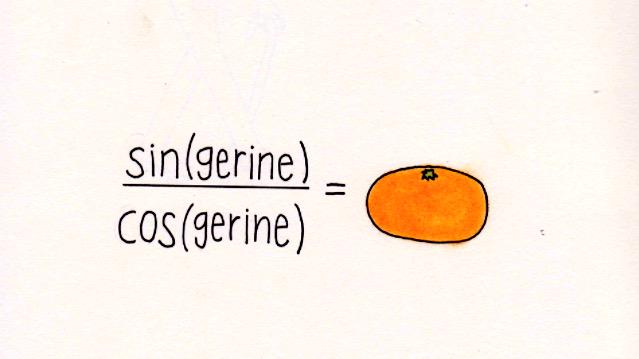 sin(gerine)
=
cos(gerine)